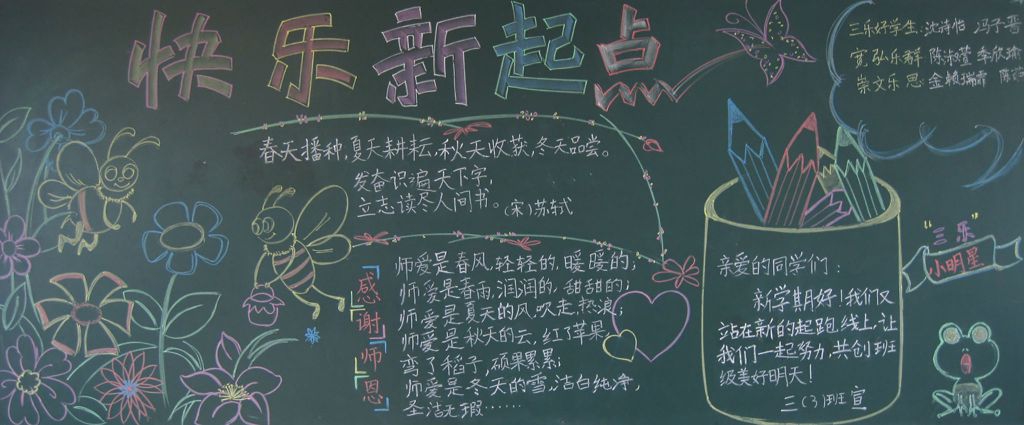 快乐新起点
春天播种,夏天耕耘,秋天收获,冬天品尝。
发奋识遍天下字,
立志读尽人间书。(宋)苏轼
感谢师恩
师爱是春风,轻轻的,暖暖的;
师爱是春雨,润润的,甜甜的;
师爱是夏天的风,吹走热浪;
师爱是秋天的云,红了苹果
弯了稻子,硕果累累;
师爱是冬天的雪,洁白纯净,
圣洁无瑕……
三乐好学生:沈诗怡 冯子
宽弘乐群 陈淑萱 季欣瑜
崇文乐思 金赖瑞霏 陈
"三乐"
小明星
亲爱的同学们:
新学期好!我们又
站在新的起跑线上,让
我们一起努力,共创班
级美好明天!
三(3)班宣